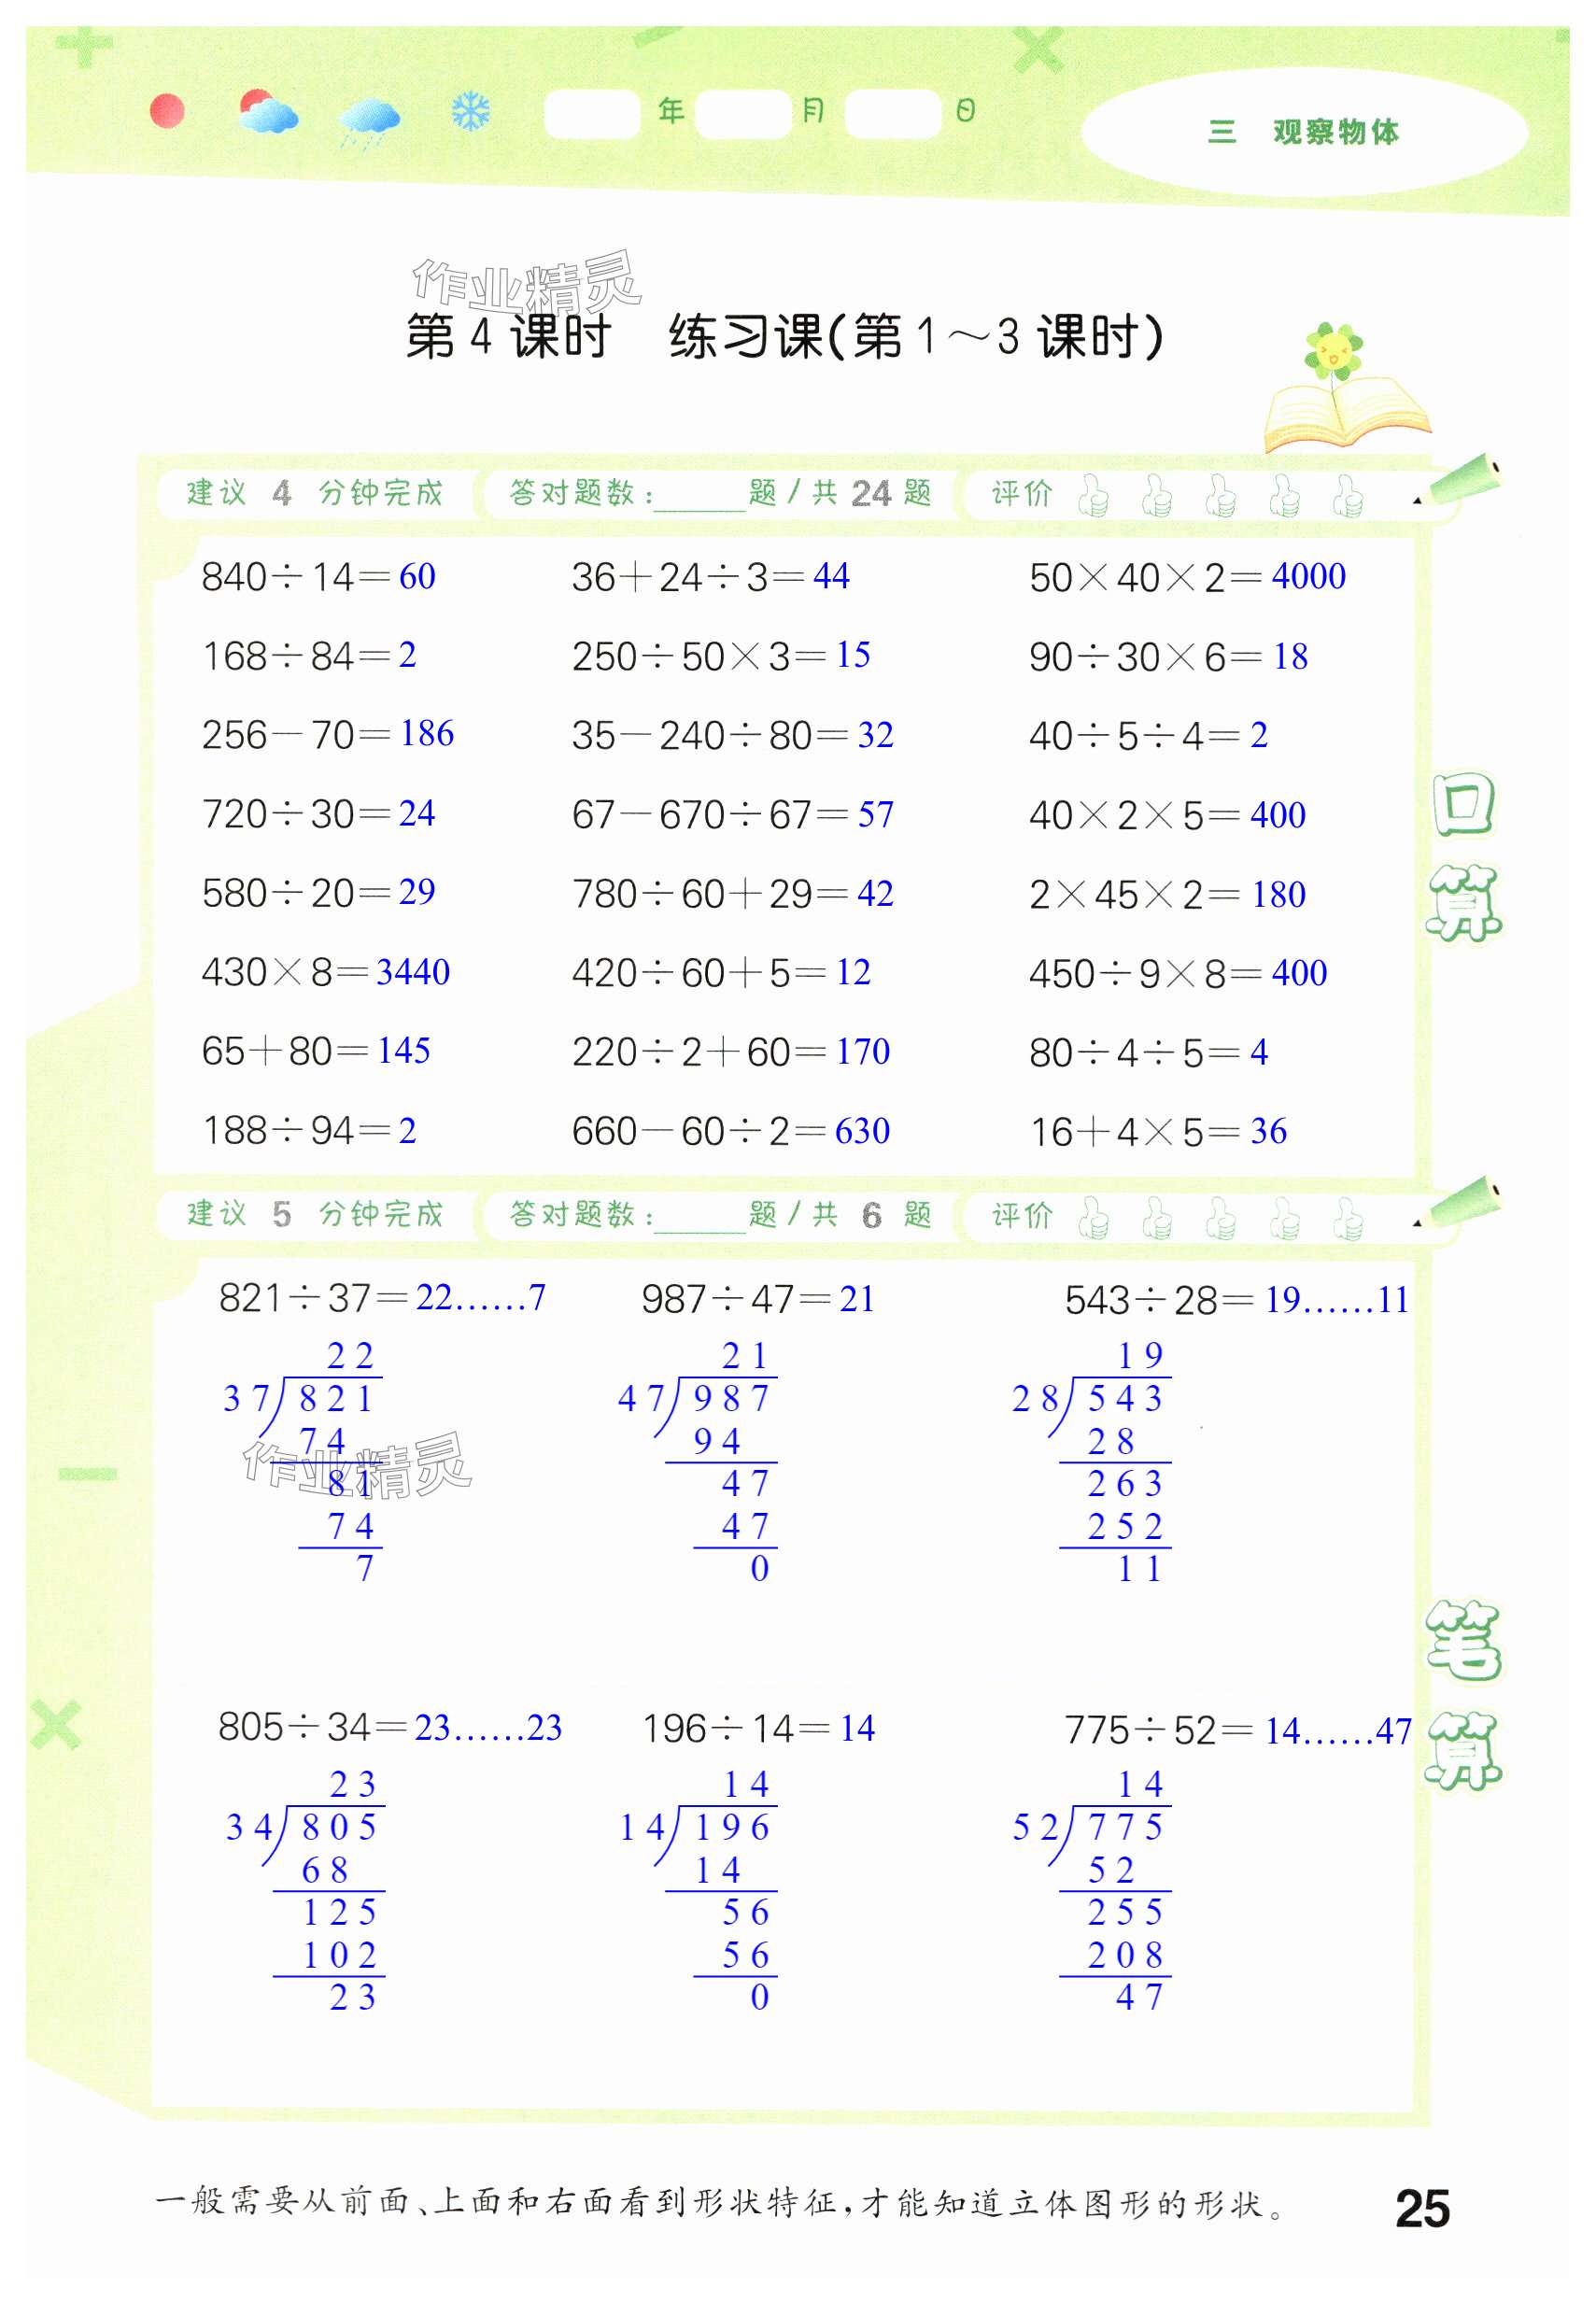 年 月 日
三 观察物体
作业精灵
第4课时 练习课(第1～3课时)
建议 4 分钟完成 答对题数：_____题/共24题 评价
840÷14=60 36+24÷3=44 50×40×2=4000
168÷84=2 250÷50×3=15 90÷30×6=18
256-70=186 35-240÷80=32 40÷5÷4=2
720÷30=24 67-670÷67=57 40×2×5=400
580÷20=29 780÷60+29=42 2×45×2=180
430×8=3440 420÷60+5=12 450÷9×8=400
65+80=145 220÷2+60=170 80÷4÷5=4
188÷94=2 660-60÷2=630 16+4×5=36
口算
建议 5 分钟完成 答对题数：_____题/共 6 题 评价
821÷37=22……7 987÷47=21 543÷28=19……11
22 21 19
37 821 47 987 28 543
74 94 28
作业精灵
81 47 263
74 47 252
7 0 11
805÷34=23……23 196÷14=14 775÷52=14……47
23 14 14
34 805 14 196 52 775
68 14 52
125 56 255
102 56 208
23 0 47
笔算
一般需要从前面、上面和右面看到形状特征,才能知道立体图形的形状。
25